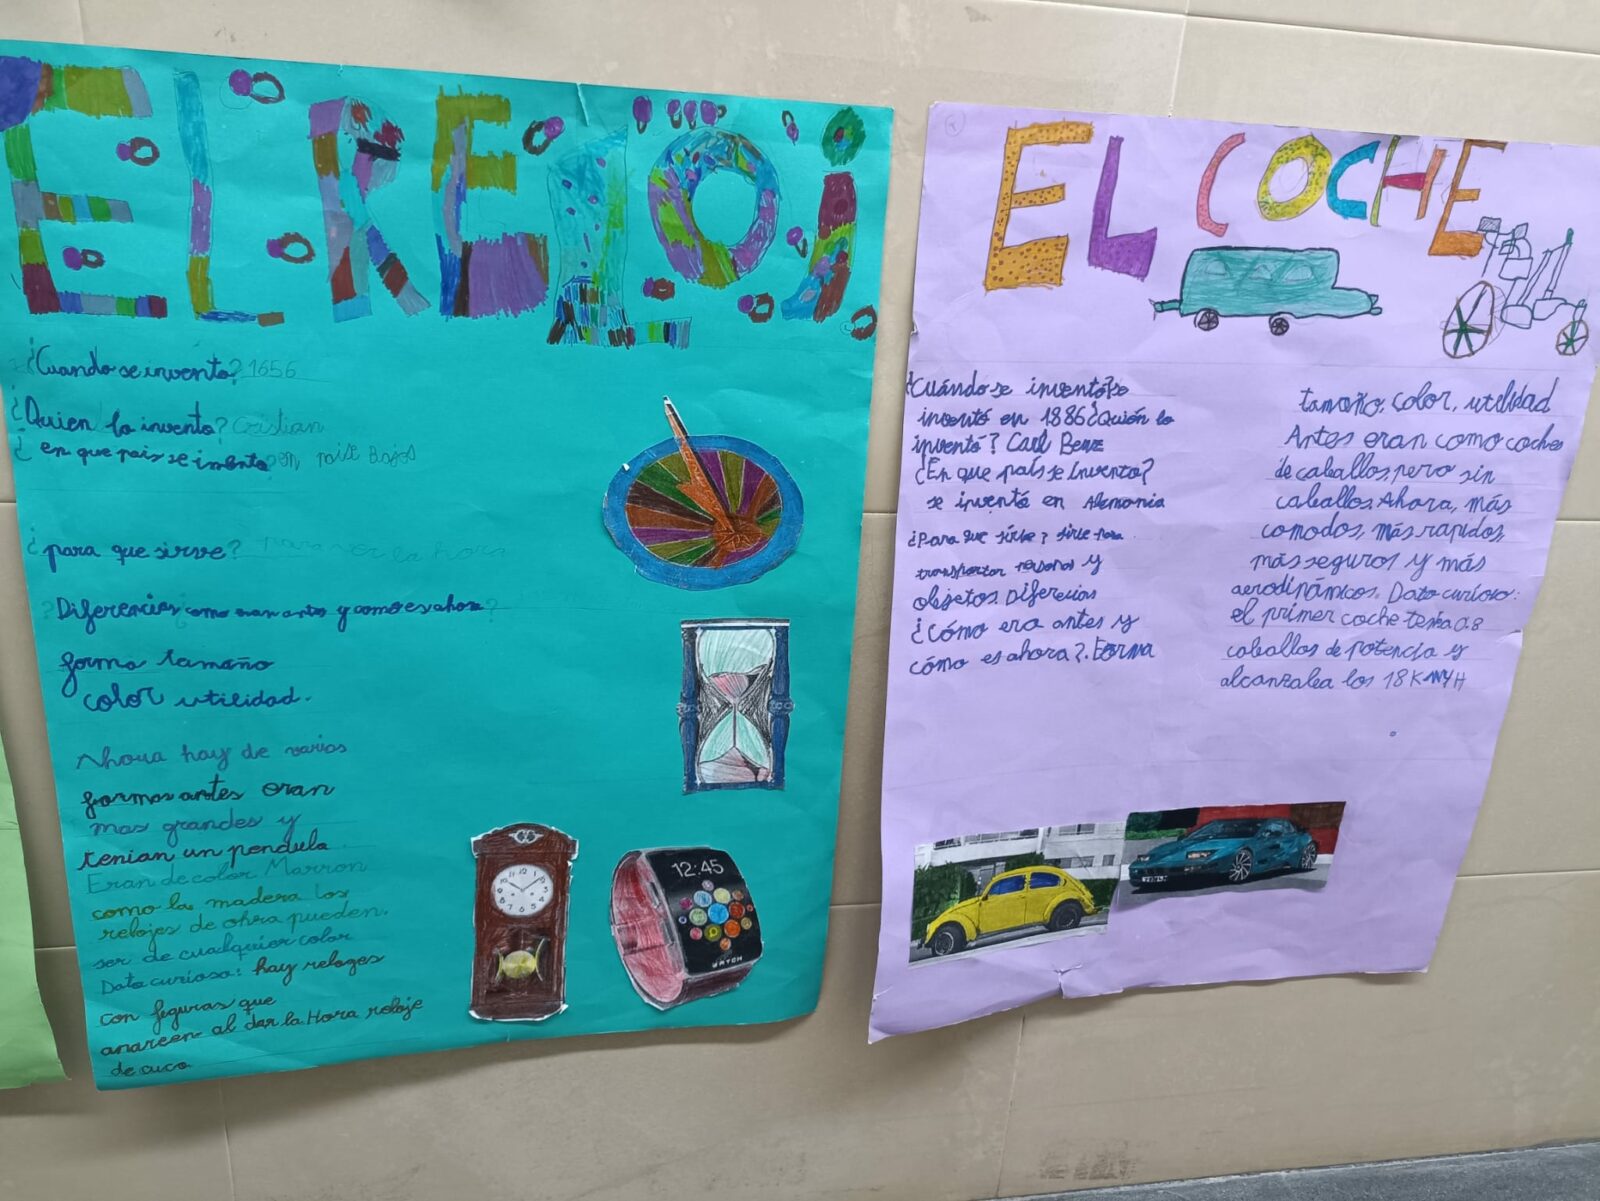 EL RELOJ
¿Cuando se invento? 1656
¿Quien lo invento? Cristian
¿ en que pais se invento? en paise Bajos
¿para que sirve? para ver la hora
Diferencias como eran antes y como es ahora?
forma tamaño
color utilidad.
Ahora hay de varias
formas antes eran
mas grandes y
tenian un pendula.
Eran de color Marron
como la madera los
relojes de ohra pueden.
ser de cualquier color
Dato curioso: hay reloges
con figuras que
anareen al dar la Hora reloje
de cuco
12:45
WATCH
EL COCHE
¿Cuándo se inventó? se
inventó en 1886 ¿Quién lo
inventó? Carl Benz
¿En que país se Invento?
se inventó en Alemania
¿Para que sirve? sirve para
transportar personas y
objetos. Diferecias
¿Cómo era antes y
cómo es ahora?. Forma
tamaño, color, utilidad
Antes eran como coches
de caballos, pero sin
caballos. Ahora, más
comodos, más rapidos,
más seguros y más
aerodinámicos. Dato curioso:
el primer coche tenia 0.8
caballos de potencia y
alcanzaba los 18 KM/H